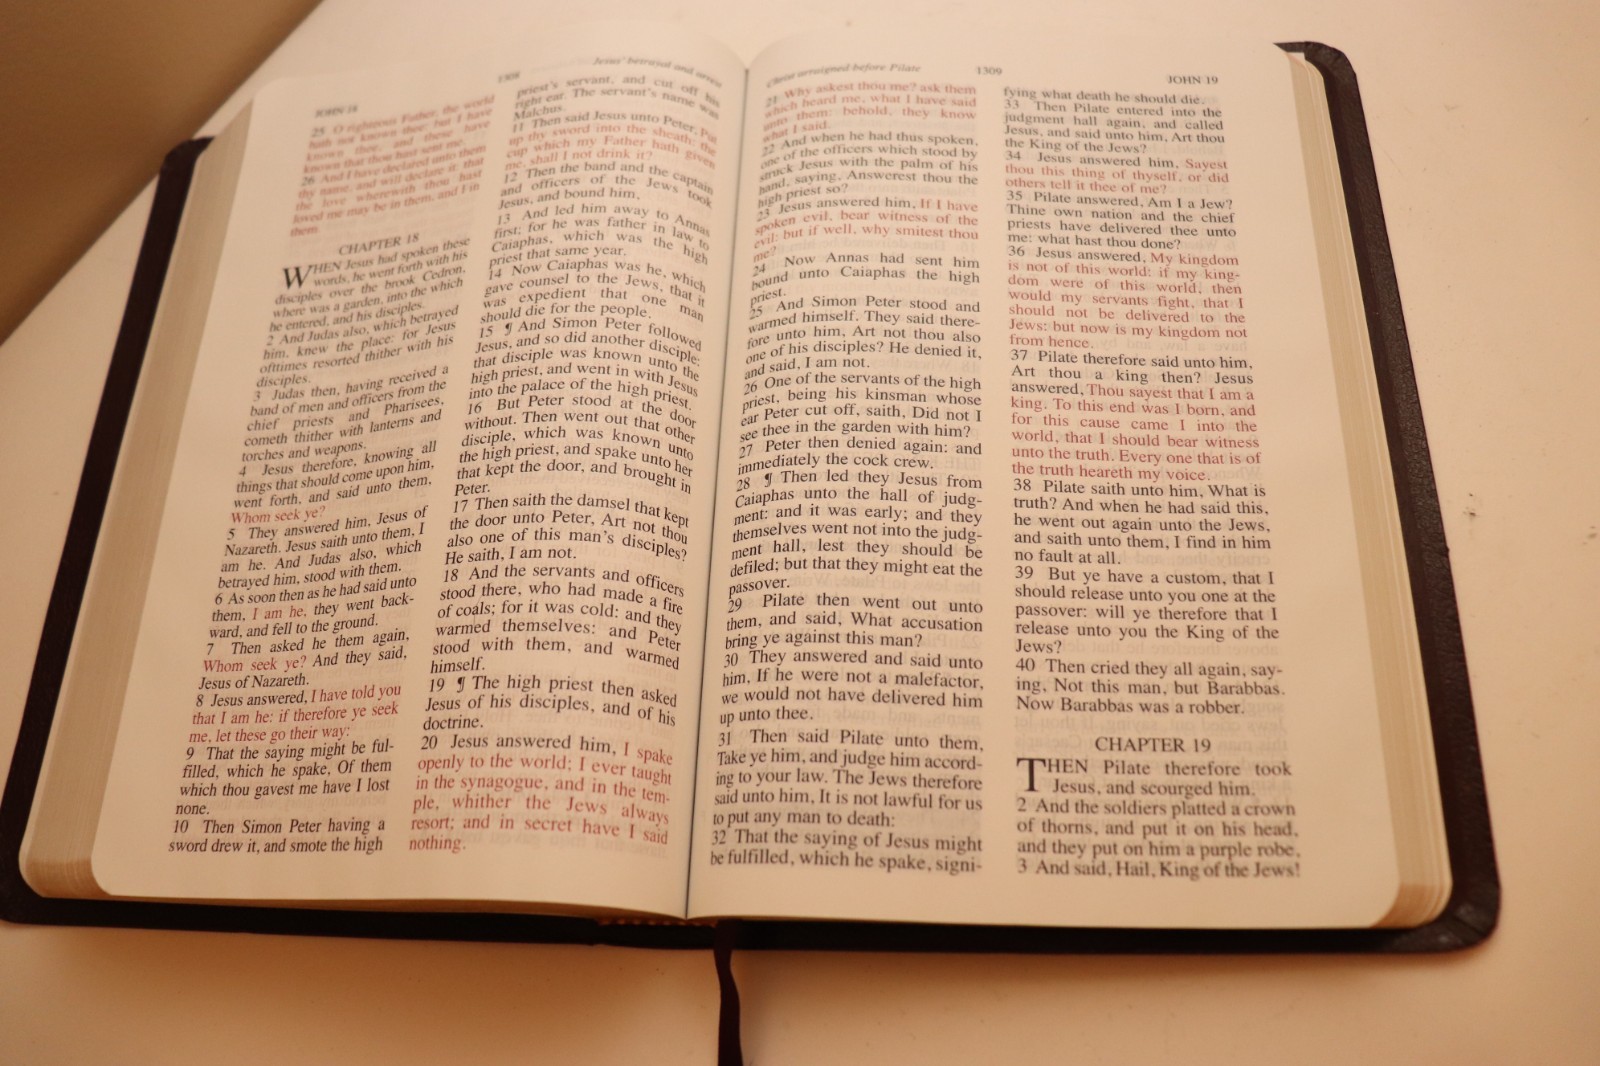 JOHN 18
1308
Jesus' betrayal and arrest
25 O righteous Father, the world
hath not known thee: but I have
known thee, and these have
known that thou hast sent me.
26 And I have declared unto them
thy name, and will declare it: that
the love wherewith thou hast
loved me may be in them, and I in
them.
CHAPTER 18
WHEN Jesus had spoken these
words, he went forth with his
disciples over the brook Cedron,
where was a garden, into the which
he entered, and his disciples.
2 And Judas also, which betrayed
him, knew the place: for Jesus
ofttimes resorted thither with his
disciples.
3 Judas then, having received a
band of men and officers from the
chief priests and Pharisees,
cometh thither with lanterns and
torches and weapons.
4 Jesus therefore, knowing all
things that should come upon him,
went forth, and said unto them,
Whom seek ye?
5 They answered him, Jesus of
Nazareth. Jesus saith unto them, I
am he. And Judas also, which
betrayed him, stood with them.
6 As soon then as he had said unto
them, I am he, they went back-
ward, and fell to the ground.
7 Then asked he them again,
Whom seek ye? And they said,
Jesus of Nazareth.
8 Jesus answered, I have told you
that I am he: if therefore ye seek
me, let these go their way:
9 That the saying might be ful-
filled, which he spake, Of them
which thou gavest me have I lost
none.
10 Then Simon Peter having a
sword drew it, and smote the high
priest's servant, and cut off his
right ear. The servant's name was
Malchus.
11 Then said Jesus unto Peter, Put
up thy sword into the sheath: the
cup which my Father hath given
me, shall I not drink it?
12 Then the band and the captain
and officers of the Jews took
Jesus, and bound him,
13 And led him away to Annas
first; for he was father in law to
Caiaphas, which was the high
priest that same year.
14 Now Caiaphas was he, which
gave counsel to the Jews, that it
was expedient that one man
should die for the people.
15 ¶ And Simon Peter followed
Jesus, and so did another disciple:
that disciple was known unto the
high priest, and went in with Jesus
into the palace of the high priest.
16 But Peter stood at the door
without. Then went out that other
disciple, which was known unto
the high priest, and spake unto her
that kept the door, and brought in
Peter.
17 Then saith the damsel that kept
the door unto Peter, Art not thou
also one of this man's disciples?
He saith, I am not.
18 And the servants and officers
stood there, who had made a fire
of coals; for it was cold: and they
warmed themselves: and Peter
stood with them, and warmed
himself.
19 ¶ The high priest then asked
Jesus of his disciples, and of his
doctrine.
20 Jesus answered him, I spake
openly to the world; I ever taught
in the synagogue, and in the tem-
ple, whither the Jews always
resort; and in secret have I said
nothing.
Christ arraigned before Pilate
1309
JOHN 19
21 Why askest thou me? ask them
which heard me, what I have said
unto them: behold, they know
what I said.
22 And when he had thus spoken,
one of the officers which stood by
struck Jesus with the palm of his
hand, saying, Answerest thou the
high priest so?
23 Jesus answered him, If I have
spoken evil, bear witness of the
evil: but if well, why smitest thou
me?
24 Now Annas had sent him
bound unto Caiaphas the high
priest.
25 And Simon Peter stood and
warmed himself. They said there-
fore unto him, Art not thou also
one of his disciples? He denied it,
and said, I am not.
26 One of the servants of the high
priest, being his kinsman whose
ear Peter cut off, saith, Did not I
see thee in the garden with him?
27 Peter then denied again: and
immediately the cock crew.
28 ¶ Then led they Jesus from
Caiaphas unto the hall of judg-
ment: and it was early; and they
themselves went not into the judg-
ment hall, lest they should be
defiled; but that they might eat the
passover.
29 Pilate then went out unto
them, and said, What accusation
bring ye against this man?
30 They answered and said unto
him, If he were not a malefactor,
we would not have delivered him
up unto thee.
31 Then said Pilate unto them,
Take ye him, and judge him accord-
ing to your law. The Jews therefore
said unto him, It is not lawful for us
to put any man to death:
32 That the saying of Jesus might
be fulfilled, which he spake, signi-
fying what death he should die.
33 Then Pilate entered into the
judgment hall again, and called
Jesus, and said unto him, Art thou
the King of the Jews?
34 Jesus answered him, Sayest
thou this thing of thyself, or did
others tell it thee of me?
35 Pilate answered, Am I a Jew?
Thine own nation and the chief
priests have delivered thee unto
me: what hast thou done?
36 Jesus answered, My kingdom
is not of this world: if my king-
dom were of this world, then
would my servants fight, that I
should not be delivered to the
Jews: but now is my kingdom not
from hence.
37 Pilate therefore said unto him,
Art thou a king then? Jesus
answered, Thou sayest that I am a
king. To this end was I born, and
for this cause came I into the
world, that I should bear witness
unto the truth. Every one that is of
the truth heareth my voice.
38 Pilate saith unto him, What is
truth? And when he had said this,
he went out again unto the Jews,
and saith unto them, I find in him
no fault at all.
39 But ye have a custom, that I
should release unto you one at the
passover: will ye therefore that I
release unto you the King of the
Jews?
40 Then cried they all again, say-
ing, Not this man, but Barabbas.
Now Barabbas was a robber.
CHAPTER 19
THEN Pilate therefore took
Jesus, and scourged him.
2 And the soldiers platted a crown
of thorns, and put it on his head,
and they put on him a purple robe,
3 And said, Hail, King of the Jews!